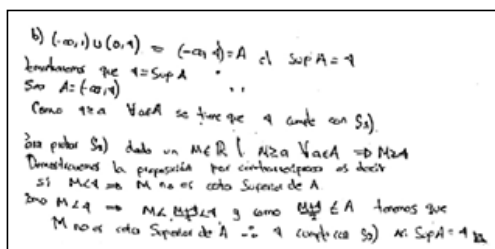 b) (-∞,1) ∪ (0,4) = (-∞,4) = A el Sup A = 4
Demostraremos que 4 = Sup A
Sea A = (-∞,4)
Como 4 ≥ a ∀a∈A se tiene que 4 cumple con S₁).
para probar S₂) dado un M∈ℝ | M≥a ∀a∈A ⇒ M≥4
Demostraremos la proposición por contrarrecíproco es decir
si M<4 ⇒ M no es cota Superior de A.
M<4 ⇒ M< M+4/2 <4 y como M+4/2 ∈ A tenemos que
M no es cota Superior de A ∴ 4 cumple con S₂) Sup A = 4